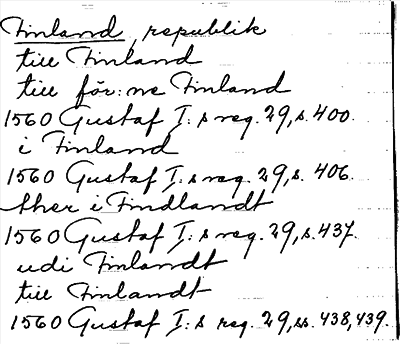 Finland, republik
till Finland
till för:ne Finland
1560 Gustaf I:s reg. 29, s. 400.
i Finland
1560 Gustaf I:s reg. 29, s. 406.
ther i Findlandt
1560 Gustaf I:s reg. 29, s. 437.
udi Finlandt
till Finlandt
1560 Gustaf I:s reg. 29, ss. 438, 439.